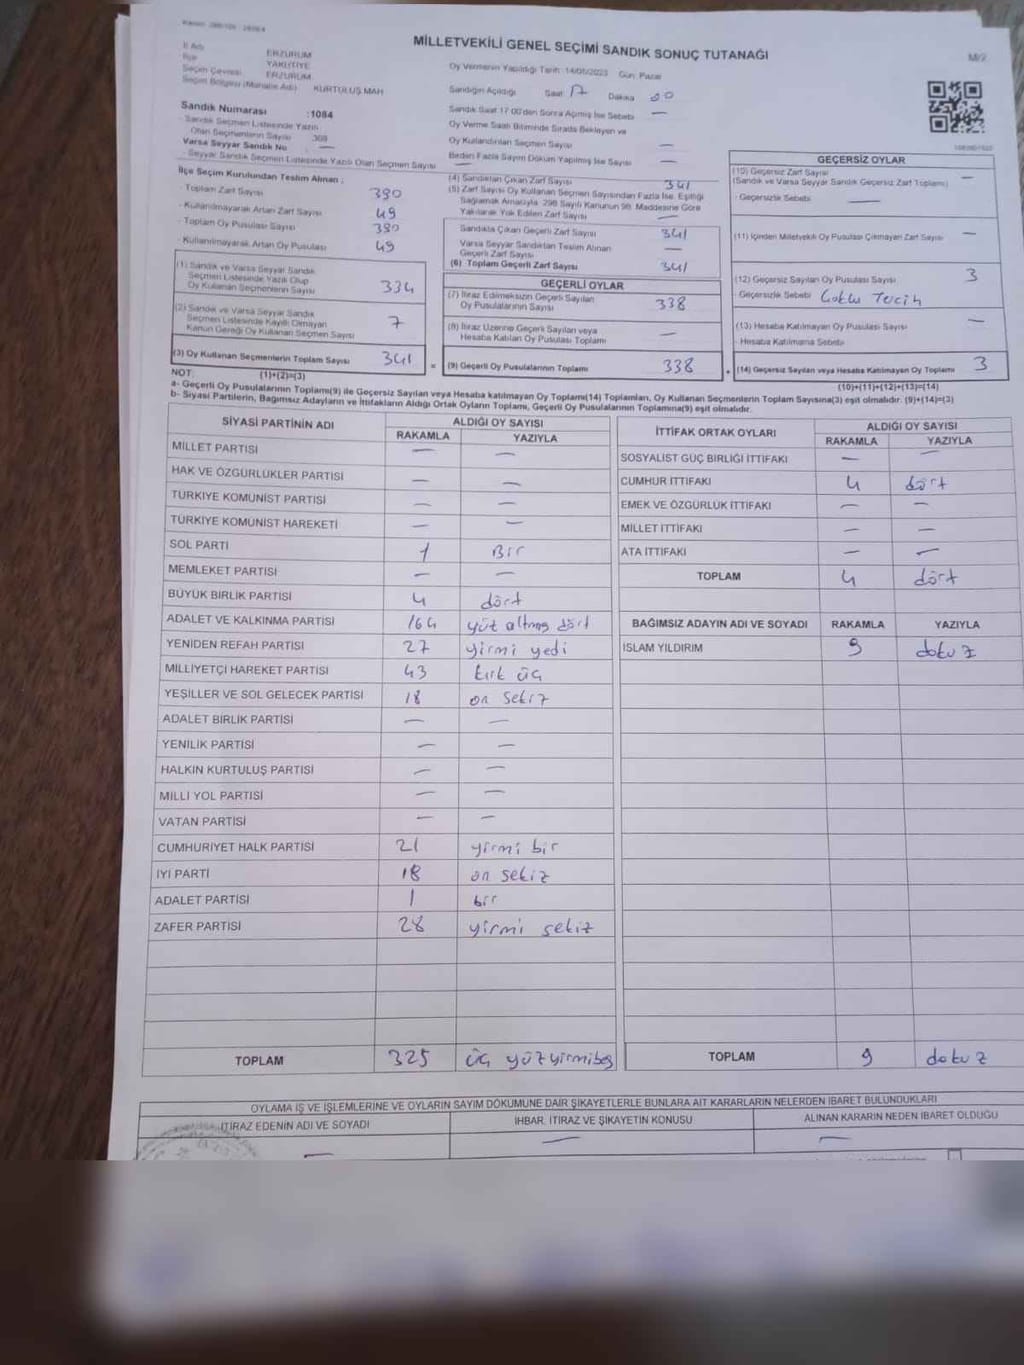 MİLLETVEKİLİ GENEL SEÇİMİ SANDIK SONUÇ TUTANAĞI
İl Adı ERZURUM
İlçe YAKUTİYE
Seçim Çevresi ERZURUM
Seçim Bölgesi (Mahalle Adı) KURTULUŞ MAH
Oy Vermenin Yapıldığı Tarih: 14/05/2023 Gün: Pazar
Sandığın Açıldığı Saat 17 Dakika 00
Sandık Saat 17:00'den Sonra Açılmış İse Sebebi —
Oy Verme Saati Bitiminde Sırada Bekleyen ve
Oy Kullandırılan Seçmen Sayısı —
Birden Fazla Sayım Döküm Yapılmış İse Sayısı —
Sandık Numarası :1084
Sandık Seçmen Listesinde Yazılı
Olan Seçmenlerin Sayısı 388
Varsa Seyyar Sandık No —
Seyyar Sandık Seçmen Listesinde Yazılı Olan Seçmen Sayısı —
İlçe Seçim Kurulundan Teslim Alınan :
- Toplam Zarf Sayısı 390
- Kullanılmayarak Artan Zarf Sayısı 49
- Toplam Oy Pusulası Sayısı 390
- Kullanılmayarak Artan Oy Pusulası 49
(1) Sandık ve Varsa Seyyar Sandık
Seçmen Listesinde Yazılı Olup
Oy Kullanan Seçmenlerin Sayısı 334
(2) Sandık ve Varsa Seyyar Sandık
Seçmen Listesinde Kayıtlı Olmayan
Kanun Gereği Oy Kullanan Seçmen Sayısı 7
(3) Oy Kullanan Seçmenlerin Toplam Sayısı 341
(1)+(2)=(3)
(4) Sandıktan Çıkan Zarf Sayısı 341
(5) Zarf Sayısı Oy Kullanan Seçmen Sayısından Fazla İse, Eşitliği
Sağlamak Amacıyla 298 Sayılı Kanunun 98. Maddesine Göre
Yakılarak Yok Edilen Zarf Sayısı —
Sandıkta Çıkan Geçerli Zarf Sayısı 341
Varsa Seyyar Sandıktan Teslim Alınan
Geçerli Zarf Sayısı —
(6) Toplam Geçerli Zarf Sayısı 341
GEÇERLİ OYLAR
(7) İtiraz Edilmeksizin Geçerli Sayılan
Oy Pusulalarının Sayısı 338
(8) İtiraz Üzerine Geçerli Sayılan veya
Hesaba Katılan Oy Pusulası Toplamı —
(9) Geçerli Oy Pusulalarının Toplamı 338
GEÇERSİZ OYLAR
(10) Geçersiz Zarf Sayısı —
(Sandık ve Varsa Seyyar Sandık Geçersiz Zarf Toplamı)
- Geçersizlik Sebebi —
(11) İçinden Milletvekili Oy Pusulası Çıkmayan Zarf Sayısı —
(12) Geçersiz Sayılan Oy Pusulası Sayısı 3
- Geçersizlik Sebebi Çoklu Tercih
(13) Hesaba Katılmayan Oy Pusulası Sayısı —
- Hesaba Katılmama Sebebi
(14) Geçersiz Sayılan veya Hesaba Katılmayan Oy Toplamı 3
(10)+(11)+(12)+(13)=(14)
NOT:
a- Geçerli Oy Pusulalarının Toplamı(9) ile Geçersiz Sayılan veya Hesaba katılmayan Oy Toplamı(14) Toplamları, Oy Kullanan Seçmenlerin Toplam Sayısına(3) eşit olmalıdır. (9)+(14)=(3)
b- Siyasi Partilerin, Bağımsız Adayların ve İttifakların Aldığı Ortak Oyların Toplamı, Geçerli Oy Pusulalarının Toplamına(9) eşit olmalıdır.
SİYASİ PARTİNİN ADI ALDIĞI OY SAYISI
RAKAMLA YAZIYLA
MİLLET PARTİSİ — —
HAK VE ÖZGÜRLÜKLER PARTİSİ — —
TÜRKİYE KOMÜNİST PARTİSİ — —
TÜRKİYE KOMÜNİST HAREKETİ — —
SOL PARTİ 1 Bir
MEMLEKET PARTİSİ — —
BÜYÜK BİRLİK PARTİSİ 4 dört
ADALET VE KALKINMA PARTİSİ 164 yüz altmış dört
YENİDEN REFAH PARTİSİ 27 yirmi yedi
MİLLİYETÇİ HAREKET PARTİSİ 43 kırk üç
YEŞİLLER VE SOL GELECEK PARTİSİ 18 on sekiz
ADALET BİRLİK PARTİSİ — —
YENİLİK PARTİSİ — —
HALKIN KURTULUŞ PARTİSİ — —
MİLLİ YOL PARTİSİ — —
VATAN PARTİSİ — —
CUMHURİYET HALK PARTİSİ 21 yirmi bir
İYİ PARTİ 18 on sekiz
ADALET PARTİSİ 1 bir
ZAFER PARTİSİ 28 yirmi sekiz
TOPLAM 325 üç yüz yirmibeş
İTTİFAK ORTAK OYLARI ALDIĞI OY SAYISI
RAKAMLA YAZIYLA
SOSYALİST GÜÇ BİRLİĞİ İTTİFAKI — —
CUMHUR İTTİFAKI 4 dört
EMEK VE ÖZGÜRLÜK İTTİFAKI — —
MİLLET İTTİFAKI — —
ATA İTTİFAKI — —
TOPLAM 4 dört
BAĞIMSIZ ADAYIN ADI VE SOYADI RAKAMLA YAZIYLA
İSLAM YILDIRIM 9 dokuz
TOPLAM 9 dokuz
OYLAMA İŞ VE İŞLEMLERİNE VE OYLARIN SAYIM DÖKÜMÜNE DAİR ŞİKAYETLERLE BUNLARA AİT KARARLARIN NELERDEN İBARET BULUNDUKLARI
İTİRAZ EDENİN ADI VE SOYADI İHBAR, İTİRAZ VE ŞİKAYETİN KONUSU ALINAN KARARIN NEDEN İBARET OLDUĞU
— — —